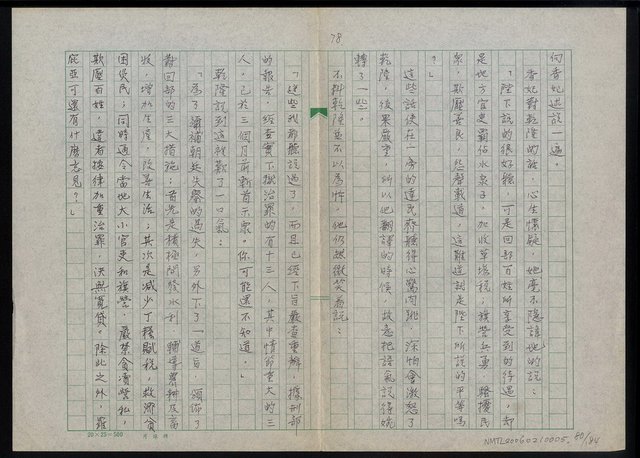 78
向香妃述說一遍。
香妃對乾隆的話，心生懷疑，她毫不隱諱地說：
「陛下說的很好聽，可是回部百姓所享受到的待遇，卻
是地方官吏霸佔水泉子。加收草場稅；旗營兵勇，騷擾民
眾，欺壓善良，怨聲載道，這難道就是陛下所說的平等嗎
？」
這些話使在一旁的達民齊聽得心驚肉跳，深怕會激怒了
乾隆，後果嚴重，所以他翻譯的時候，故意把語氣說得婉
轉了一些。
不料乾隆並不以為忤，他仍然微笑著說：
「這些我都聽說過了，而且已經下旨嚴查重辦，據刑部
的報告，經查實下獄治罪的有十三人，其中情節重大的三
人，已於三個月前斬首示眾。你可能還不知道。」
乾隆說到這裡歇了一口氣：
「為了彌補朝廷失聲的過失，另外下了一道旨，頒佈了
對回部的三大措施：首先是積極開發水利，輔導農耕及畜
牧，增加生產，改善生活；其次是減少丁稅賦稅，救濟貧
困災民；同時通令當地大小官吏和旗營，嚴禁貪瀆營私，
欺壓百姓，違者按律加重治罪，決無寬貸。除此之外，羅
庇亞可還有什麼意見？」
20×25=500
NMTL20060210005 80/184